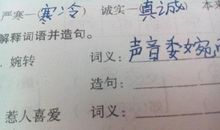 严寒—(寒冷) 诚实—(真诚) 本来
解释词语并造句。
婉转 词义：声音委婉
造句：
惹人喜爱 词义：